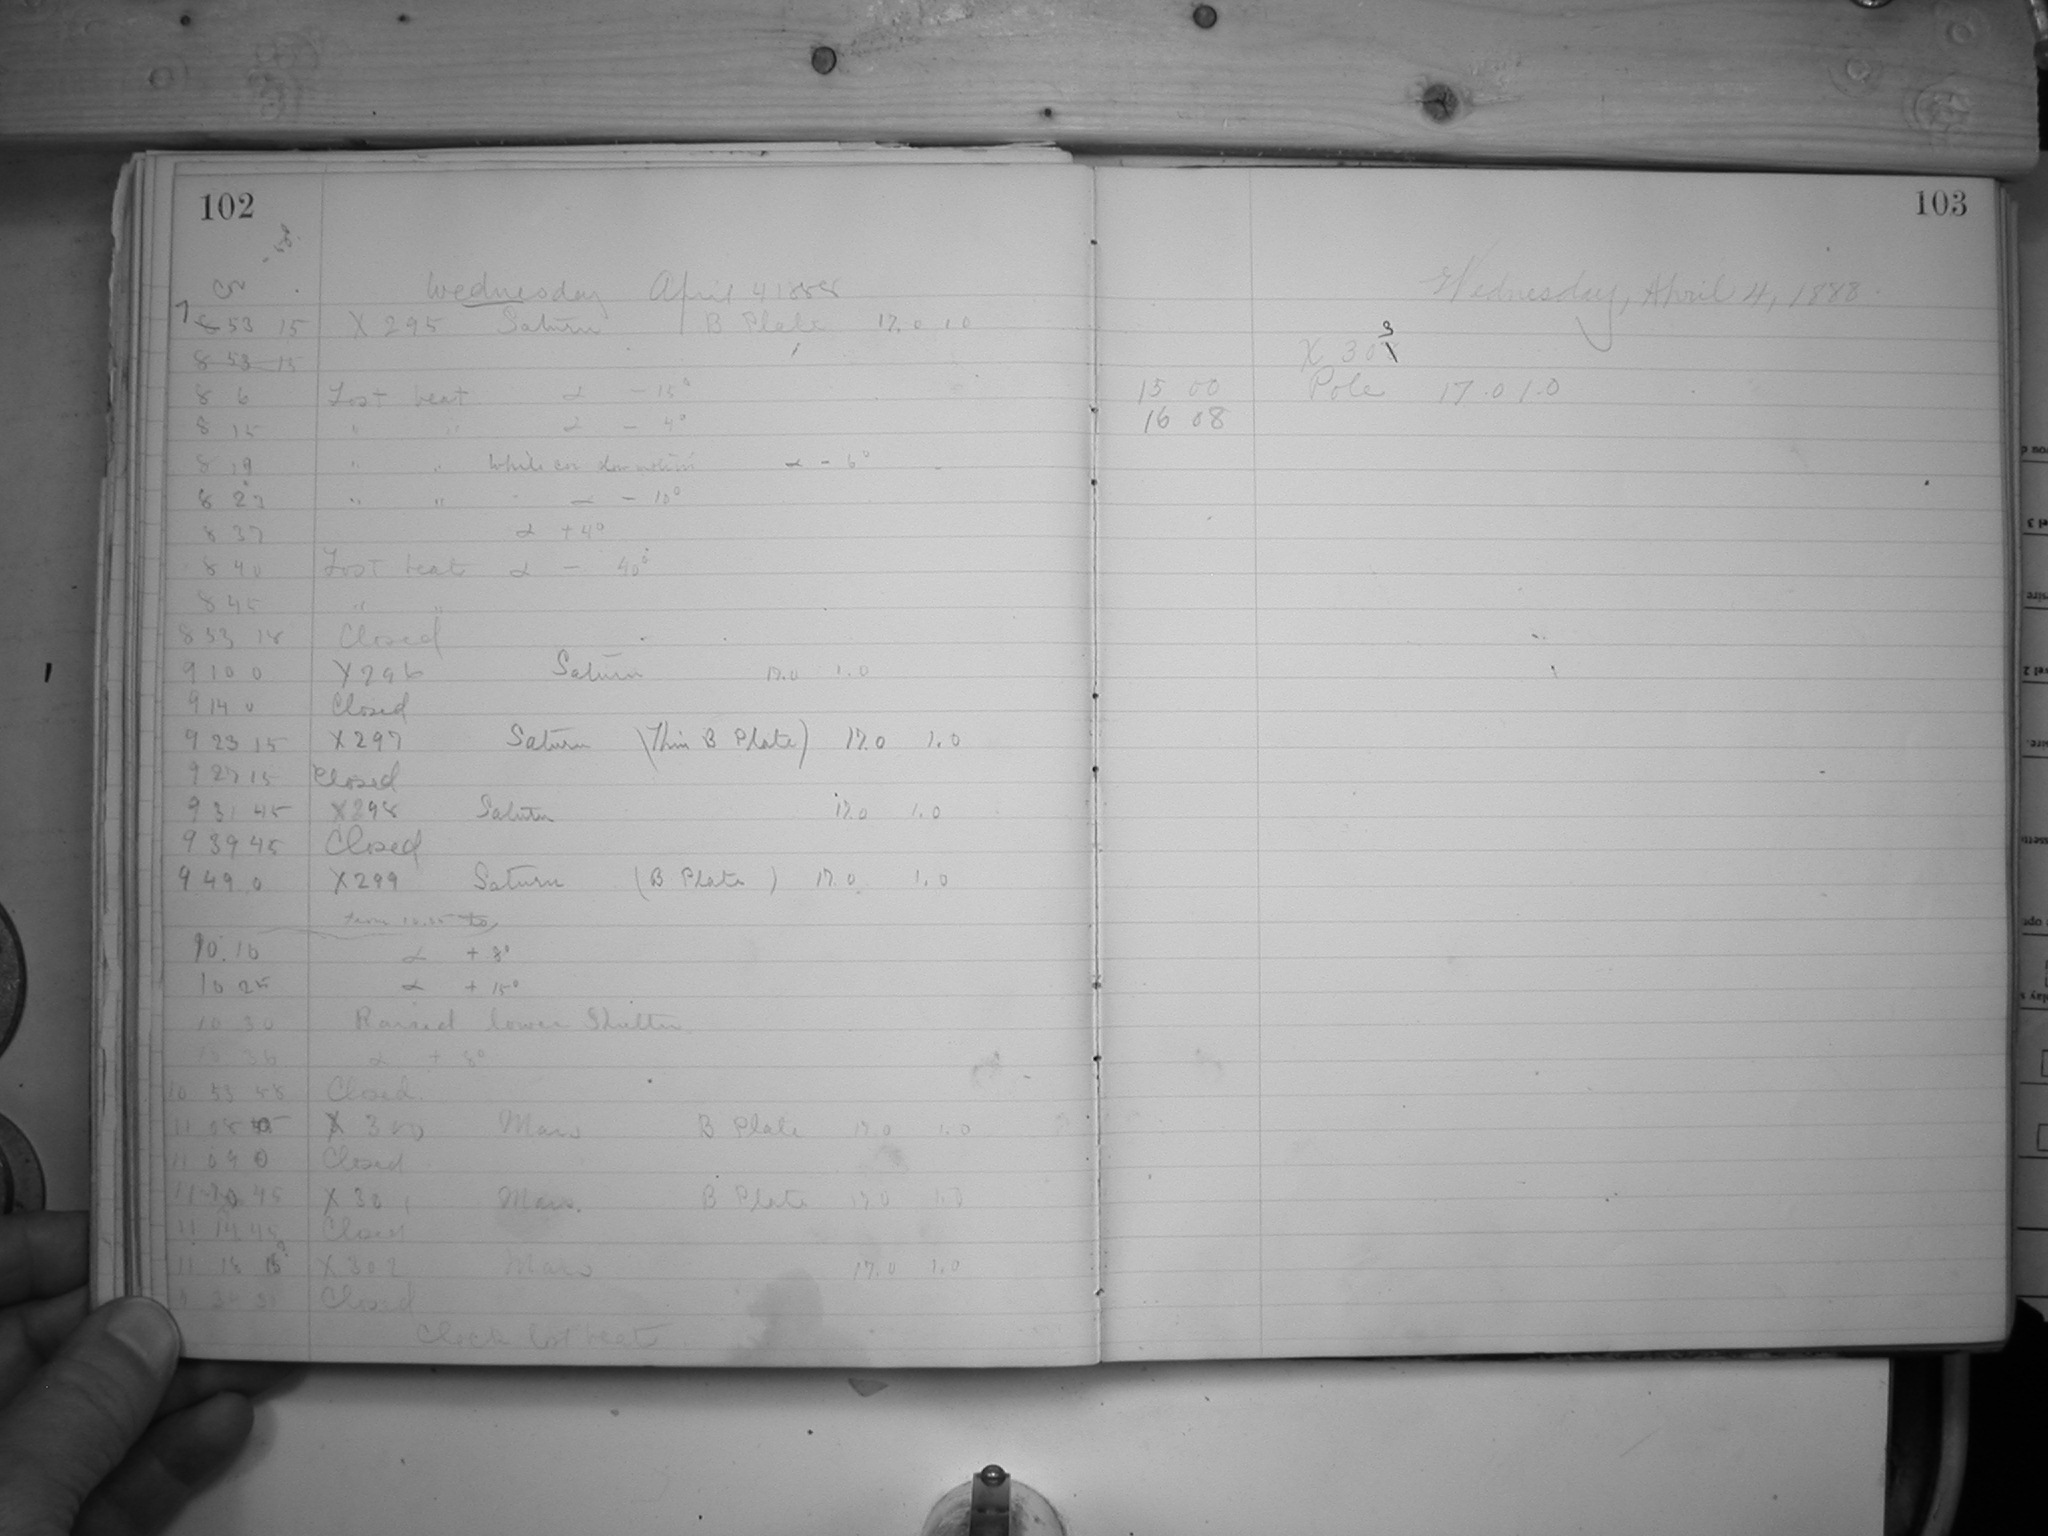 102
Wednesday April 4 1888
7 53 15 X 295 Saturn B Plate 17.0 1.0
8 53 15
8 6 Lost beat α - 15°
8 15 " " α - 4°
8 19 " " α - 6°
8 27 " " α - 10°
8 37 α + 4°
8 40 Lost beat α - 40°
8 45 " "
8 53 18 Closed
9 10 0 X 296 Saturn 17.0 1.0
9 14 0 Closed
9 23 15 X 297 Saturn (Thin B Plate) 17.0 1.0
9 27 15 Closed
9 31 45 X 298 Saturn 17.0 1.0
9 39 45 Closed
9 49 0 X 299 Saturn (B Plate) 17.0 1.0
10.10 α + 8°
10 25 α + 15°
10 30 Raised lower Shutter
10 36 α + 8°
10 53 58 Closed.
11 08 X 300 Mars B Plate 17.0 1.0
11 09 0 Closed
11 10 45 X 301 Mars. B Plate 17.0 1.0
11 14 45 Closed
11 18 X 302 Mars 17.0 1.0
Closed
Clock lost beat
103
Wednesday, April 4, 1888.
X 303
15 00 Pole 17.0 1.0
16 08